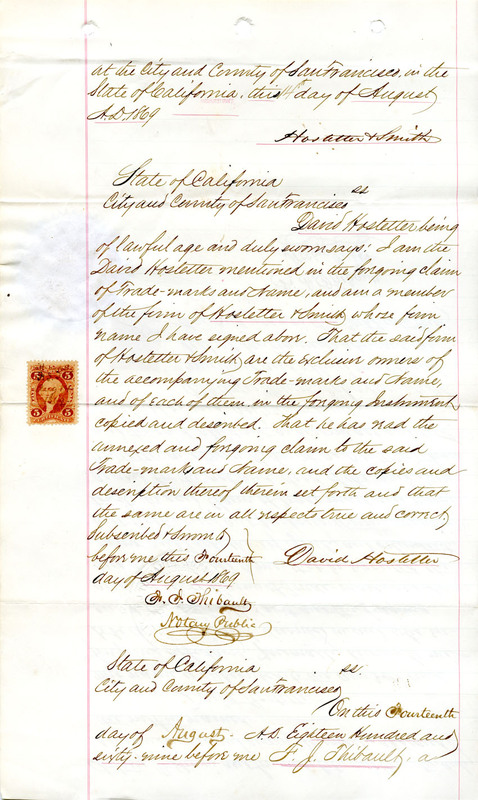 at the City and County of San Francisco, in the
State of California, this 14th day of August
A.D. 1869
Hostetter & Smith
State of California
City and County of San Francisco ss
David Hostetter being
of lawful age and duly sworn says: I am the
David Hostetter mentioned in the forgoing claim
of Trade-marks and Name, and am a member
of the firm of Hostetter & Smith whose firm
name I have signed above. That the said firm
of Hostetter & Smith are the exclusive owners of
the accompanying Trade-marks and Name,
and of each of them in the forgoing Instrument
copied and described. That he has read the
annexed and forgoing claim to the said
Trade-marks and Name, and the copies and
description thereof therein set forth and that
the same are in all respects true and correct
Subscribed & Sworn to
before me this Fourteenth
David Hostetter
day of August 1869
F. J. Thibault
Notary Public
State of California
ss.
City and County of San Francisco
On this Fourteenth
day of August A.D. Eighteen Hundred and
sixty-nine before me F. J. Thibault, a
5 5